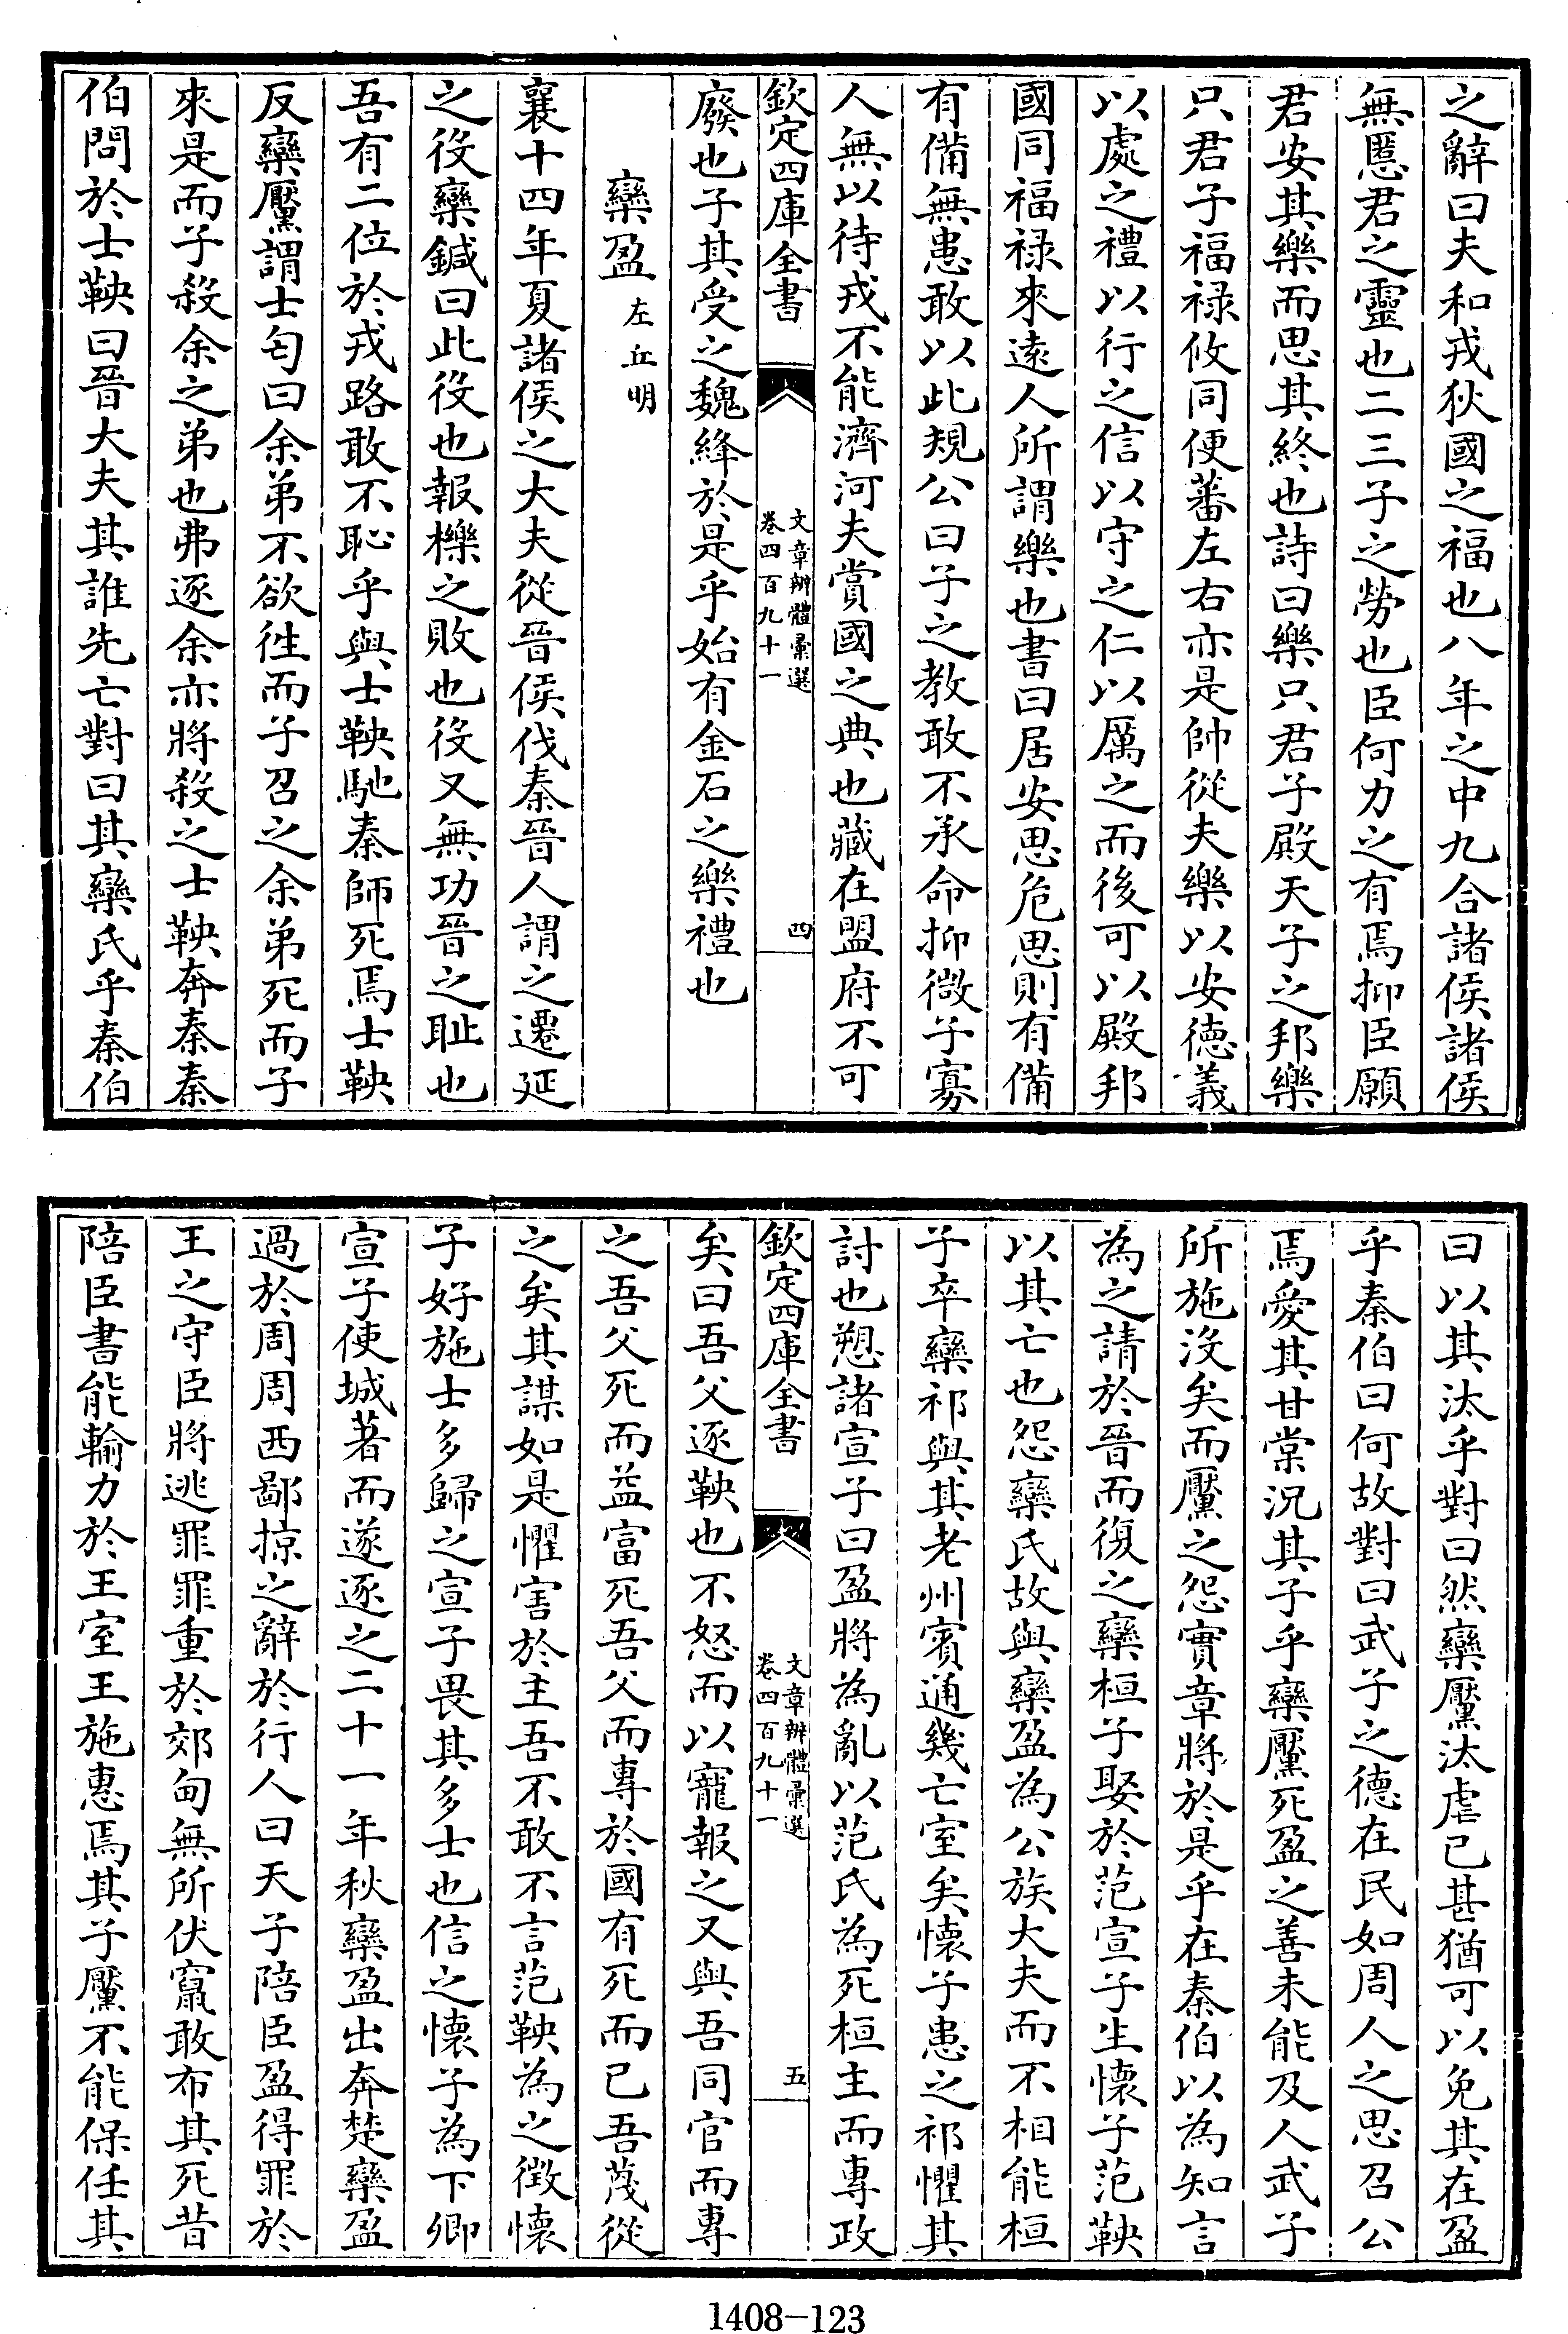 之辭曰夫和戎狄國之福也八年之中九合諸侯諸侯
無慝君之靈也二三子之勞也臣何力之有焉抑臣願
君安其樂而思其終也詩曰樂只君子殿天子之邦樂
只君子福禄攸同便蕃左右亦是帥從夫樂以安德義
以處之禮以行之信以守之仁以厲之而後可以殿邦
國同福禄來逺人所謂樂也書曰居安思危思則有備
有備無患敢以此規公曰子之教敢不承命抑微子寡
人無以待戎不能濟河夫賞國之典也藏在盟府不可
欽定四庫全書
文章辨體彚選
卷四百九十一
四
廢也子其受之魏絳於是乎始有金石之樂禮也
欒盈左丘明
襄十四年夏諸侯之大夫從晉侯伐秦晉人謂之遷延
之役欒鍼曰此役也報櫟之敗也役又無功晉之耻也
吾有二位於戎路敢不恥乎與士鞅馳秦師死焉士鞅
反欒黶謂士匄曰余弟不欲徃而子召之余弟死而子
來是而子殺余之弟也弗逐余亦將殺之士鞅奔秦秦
伯問於士鞅曰晉大夫其誰先亡對曰其欒氏乎秦伯
曰以其汰乎對曰然欒黶汰虐已甚猶可以免其在盈
乎秦伯曰何故對曰武子之德在民如周人之思召公
焉愛其甘棠況其子乎欒黶死盈之善未能及人武子
所施没矣而黶之怨實章將於是乎在秦伯以為知言
為之請於晉而復之欒桓子娶於范宣子生懷子范鞅
以其亡也怨欒氏故與欒盈為公族大夫而不相能桓
子卒欒祁與其老州賓通幾亡室矣懷子患之祁懼其
討也愬諸宣子曰盈將為亂以范氏為死桓主而專政
欽定四庫全書
文章辨體彚選
卷四百九十一
五
矣曰吾父逐鞅也不怒而以寵報之又與吾同官而專
之吾父死而益富死吾父而專於國有死而已吾蔑從
之矣其謀如是懼害於主吾不敢不言范鞅為之徴懷
子好施士多歸之宣子畏其多士也信之懷子為下卿
宣子使城著而遂逐之二十一年秋欒盈出奔楚欒盈
過於周周西鄙掠之辭於行人曰天子陪臣盈得罪於
王之守臣將逃罪罪重於郊甸無所伏竄敢布其死昔
陪臣書能輸力於王室王施惠焉其子黶不能保任其
1408-123